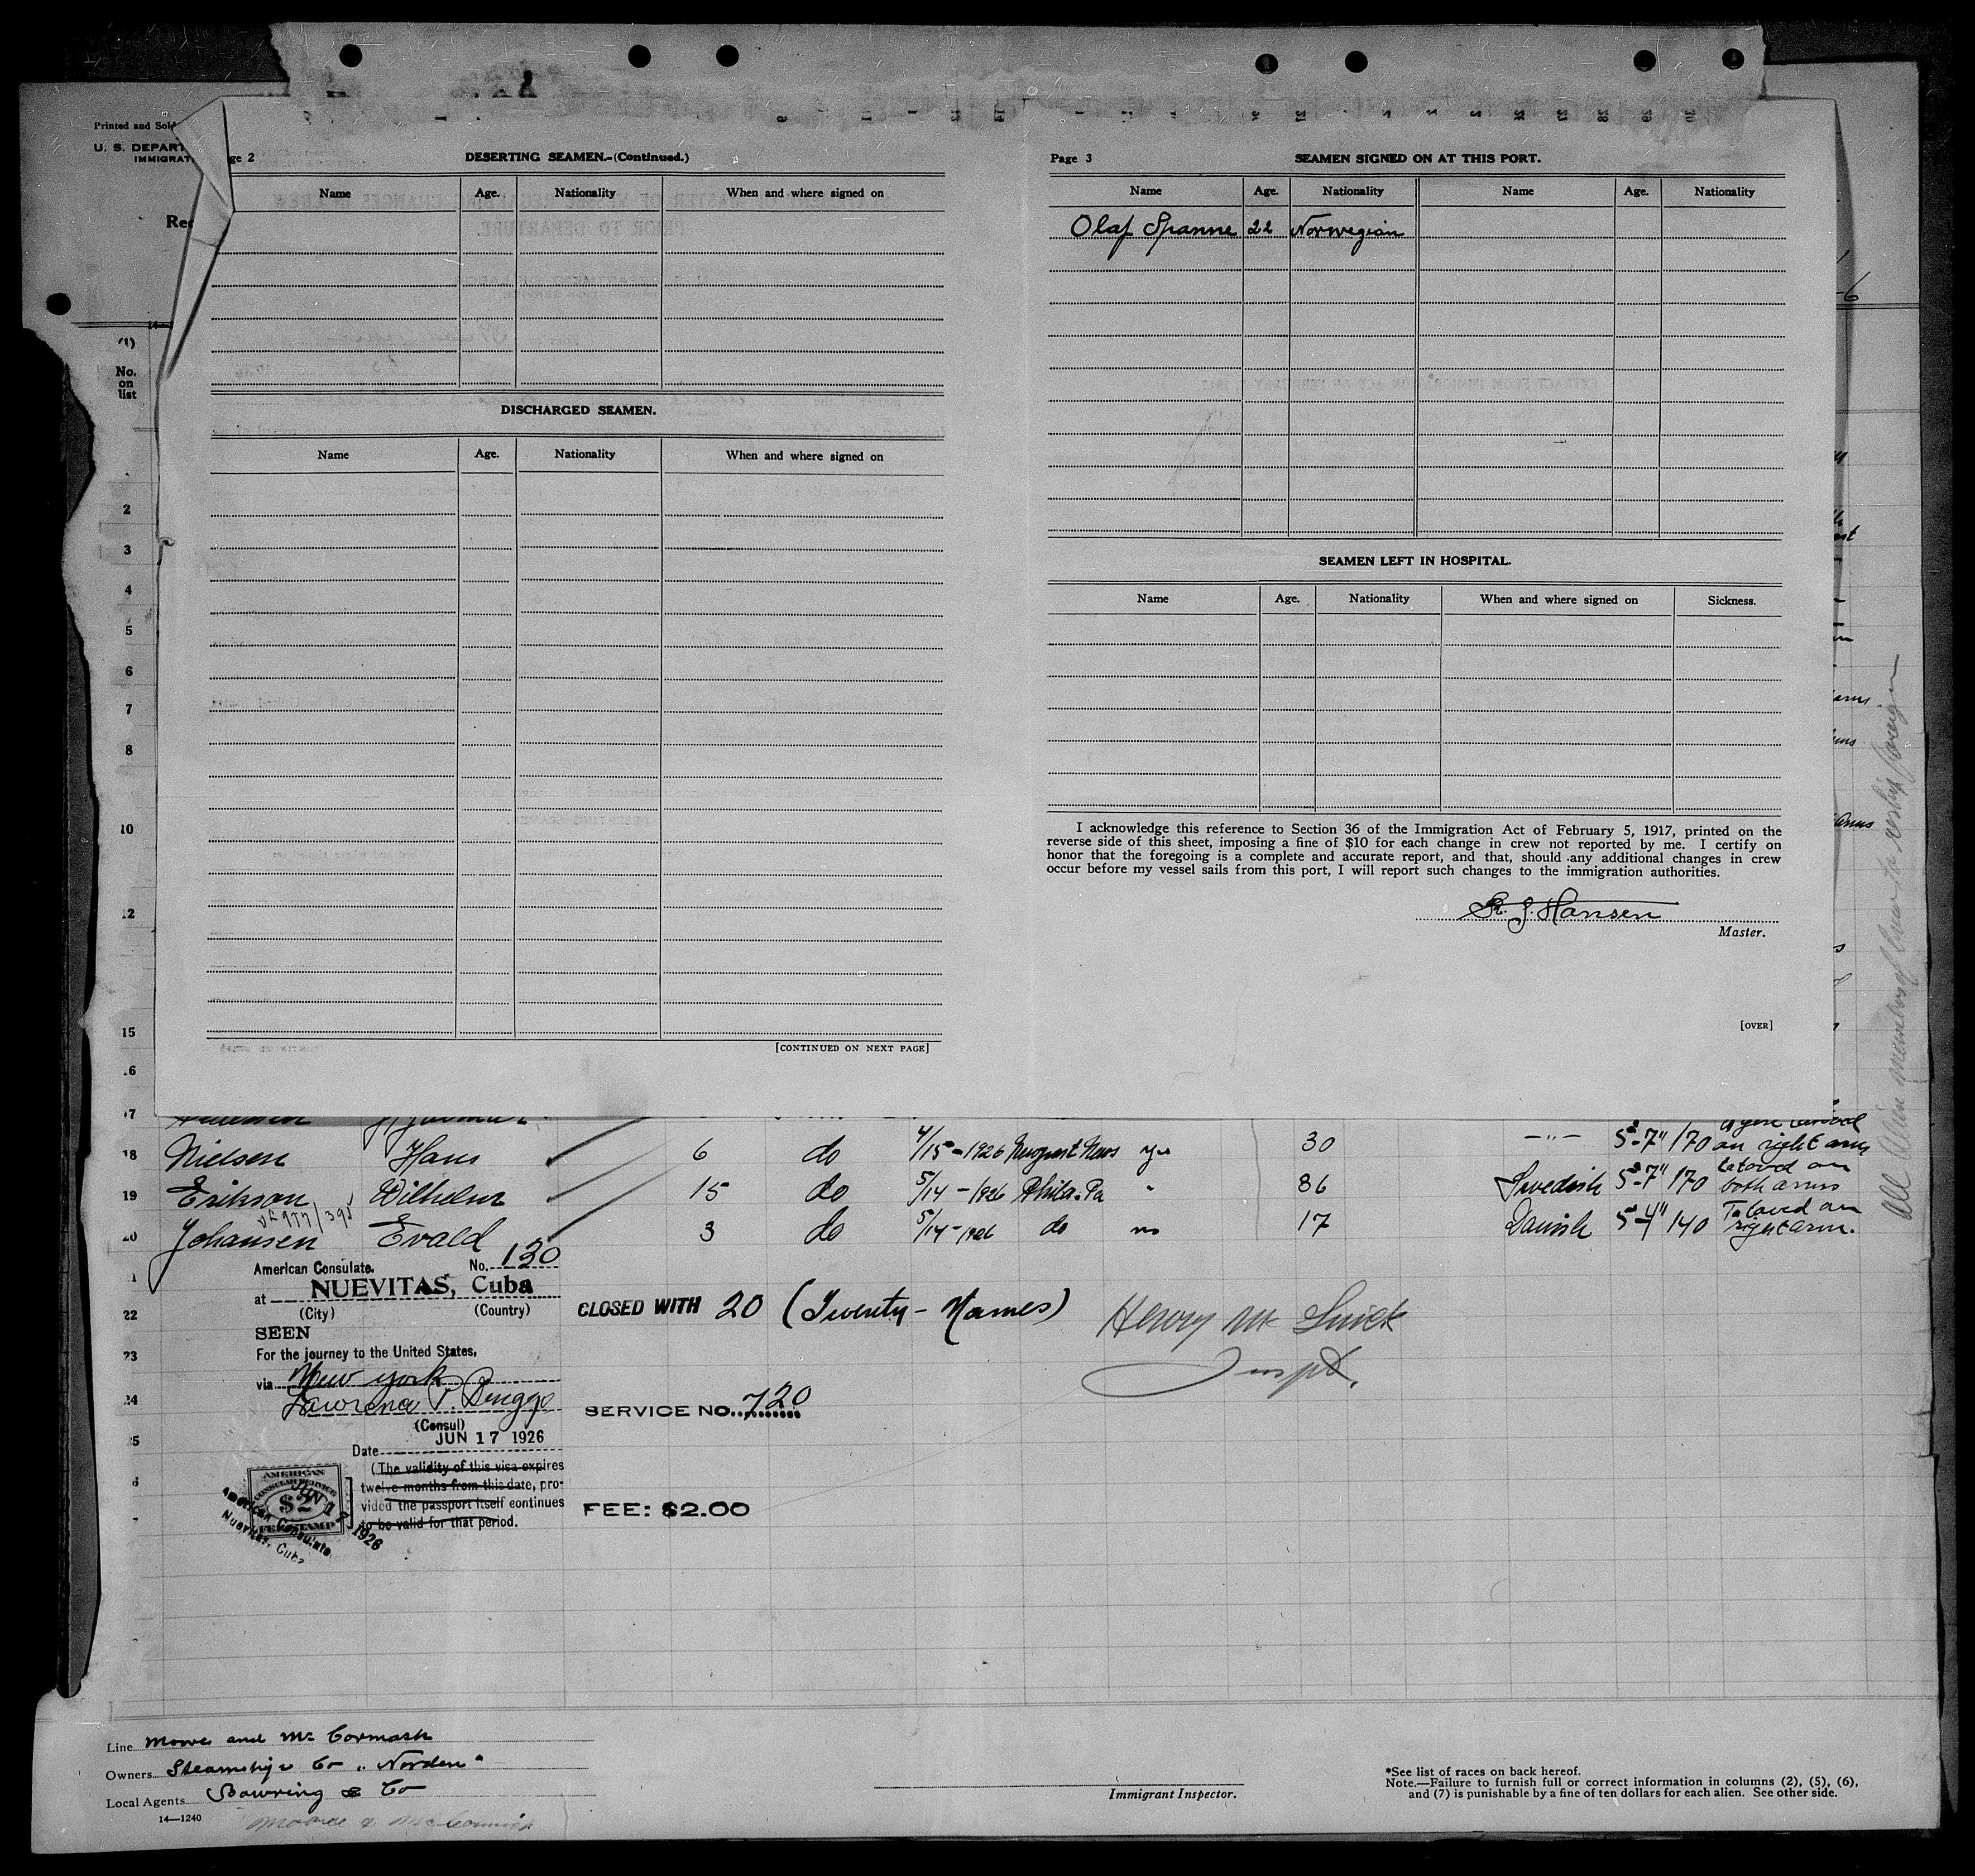 Printed and Sold
U. S. DEPART
IMMIGRAT
Rec
(1)
No.
on
list
ge 2
DESERTING SEAMEN.—(Continued.)
Name Age. Nationality When and where signed on
DISCHARGED SEAMEN.
Name Age. Nationality When and where signed on
[CONTINUED ON NEXT PAGE]
Page 3
SEAMEN SIGNED ON AT THIS PORT.
Name Age. Nationality Name Age. Nationality
Olaf Spanne 22 Norwegian
SEAMEN LEFT IN HOSPITAL.
Name Age. Nationality When and where signed on Sickness.
I acknowledge this reference to Section 36 of the Immigration Act of February 5, 1917, printed on the
reverse side of this sheet, imposing a fine of $10 for each change in crew not reported by me. I certify on
honor that the foregoing is a complete and accurate report, and that, should any additional changes in crew
occur before my vessel sails from this port, I will report such changes to the immigration authorities.
Hansen
Master.
[OVER]
2
3
4
5
6
7
8
10
12
15
16
17
18 Nielsen Hans 6 do 4/15-1926 Newport News yes 30 —"— 5-7" 170 on right arm
19 Erikson Wilhelm 15 do 5/14-1926 Phila. Pa " 36 Swedish 5-7" 170 tatooed on both arms
20 Johansen Evald 3 do 5/14-1926 do no 17 Danish 5-4" 140 Tatooed on right arm.
All Alien members of Crew to reship foreign
American Consulate. No. 130
at NUEVITAS, Cuba
(City) (Country)
SEEN
For the journey to the United States,
via New York
Lawrence P. Briggs
(Consul)
JUN 17 1926
Date
(The validity of this visa expires
twelve months from this date, pro-
vided the passport itself continues
to be valid for that period.
AMERICAN
CONSULAR SERVICE
$2
FEE STAMP
American Consulate
Nuevitas, Cuba
JUN 17 1926
22 CLOSED WITH 20 (Twenty - Names)
Henry Mc
Inspt.
23
24
SERVICE NO. 720
FEE: $2.00
Line Moore and Mc Cormack
Owners Steamship Co "Norden"
Local Agents Bowring & Co
14—1240
Moore & McCormick
Immigrant Inspector.
*See list of races on back hereof.
Note.—Failure to furnish full or correct information in columns (2), (5), (6),
and (7) is punishable by a fine of ten dollars for each alien. See other side.